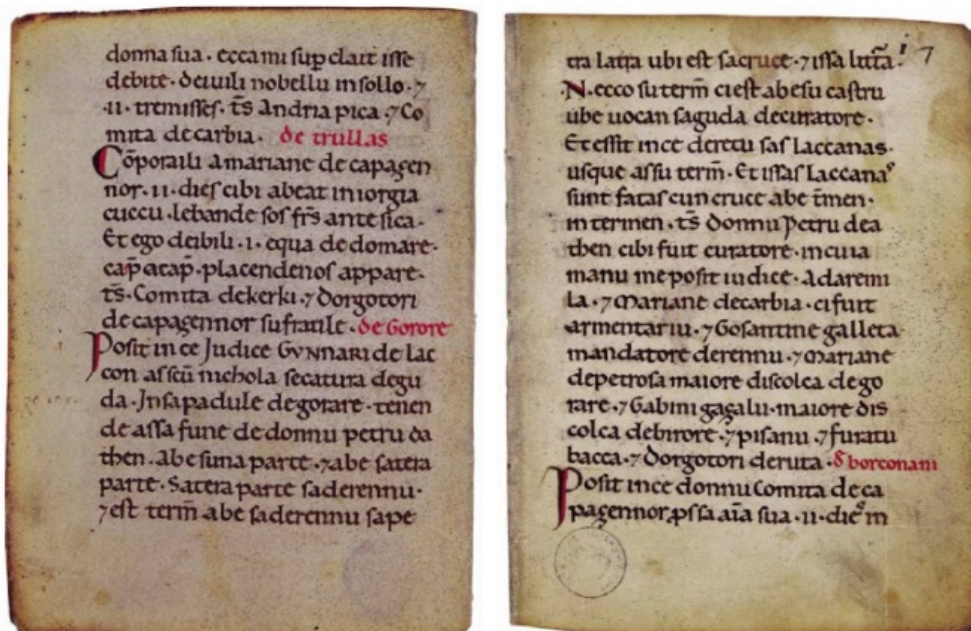 donna sua · ecca mi sup clait isse
debite · deiuili nobellu in sollo · ⁊
·II· tremisses · t̄s Andria pica · ⁊ Co
mita de carbia · de trullas
Cōporaili a mariane de capagen
nor · II · dies cibi abeat in iorgia
cuccu · lebande sos fr̄s ante sica ·
Et ego deibili · I · equa de domare ·
cap̄ a cap̄ · placendenos appare ·
t̄s · Comita de kerki · ⁊ Dorgotori
de capagennor su fratile · de Gorore
Posit ince Judice GVNNARI de lac
con assc̄u nichola secatura degu
da · Jnsa padule de gorare · tenen
de assa fune de donnu petru da
then · abesuna parte · ⁊ abe satera
parte · Satera parte saderennu ·
⁊ est term̄ abe saderennu sa pe
tra latia ubi est sa cruce · ⁊ issa litt̄a · 7
N · ecco su term̄ ci est abesu castru
ube uocan saguda de curatore ·
Et essit ince deretu sas laccanas ·
usque assu term̄ · Et issas laccanas
sunt fatas cun cruce abe t̄men ·
in termen · t̄s Donnu Petru de a
then cibi fuit curatore · in cuia
manu me posit iudice · a daremi
la · ⁊ Mariane decarbia · ci fuit
armentariu · ⁊ Gosantine galleta
mandatore derennu · ⁊ Mariane
depetrosa maiore discolca de go
rare · ⁊ Gabini gaçalu · maiore dis
colca debirore · ⁊ pisanu · ⁊ furatu
bacca · ⁊ Dorgotori deruta · đ borconani
Posit ince donnu Comita de ca
pagennor ꝓssa aīa sua · II · dies in